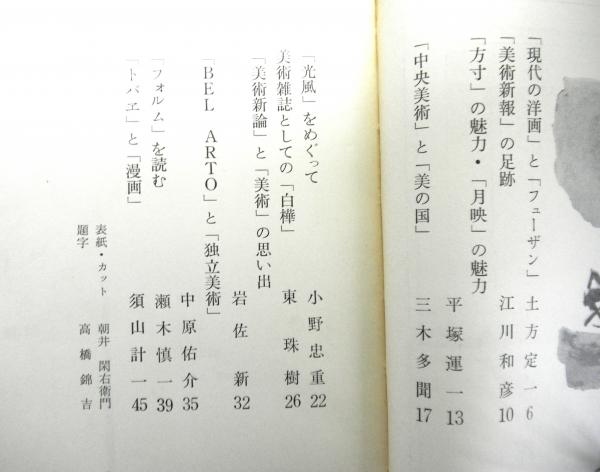 「現代の洋画」と「フューザン」 土方定一 6
「美術新報」の足跡 江川和彦 10
「方寸」の魅力・「月映」の魅力 平塚運一 13
「中央美術」と「美の国」 三木多聞 17
「光風」をめぐって 小野忠重 22
美術雑誌としての「白樺」 東珠樹 26
「美術新論」と「美術」の思い出 岩佐新 32
「BEL ARTO」と「独立美術」 中原佑介 35
「フォルム」を読む 瀬木慎一 39
「トバエ」と「漫画」 須山計一 45
表紙・カット 朝井閑右衛門
題字 高橋錦吉